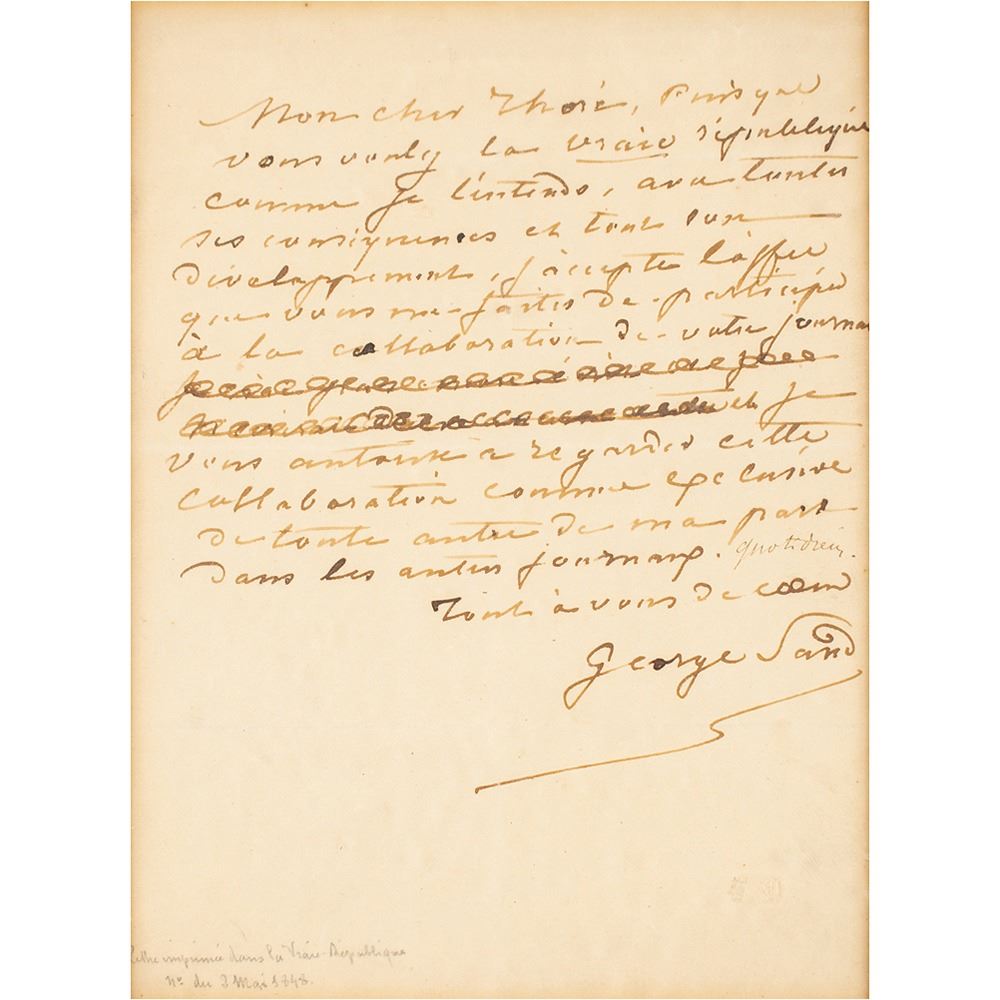 Mon cher Thoré, Puisque
vous voulez la vraie république
comme je l'entends, avec toutes
ses conséquences et tout son
développement, j'accepte l'offre
que vous me faites de participer
à la collaboration de votre journal
et je
vous autorise à regarder cette
collaboration comme exclusive
de toute autre de ma part
dans les autres journaux. quotidiens.
Tout à vous de cœur
George Sand
Lettre imprimée dans la Vraie République
n° du 3 Mai 1848.